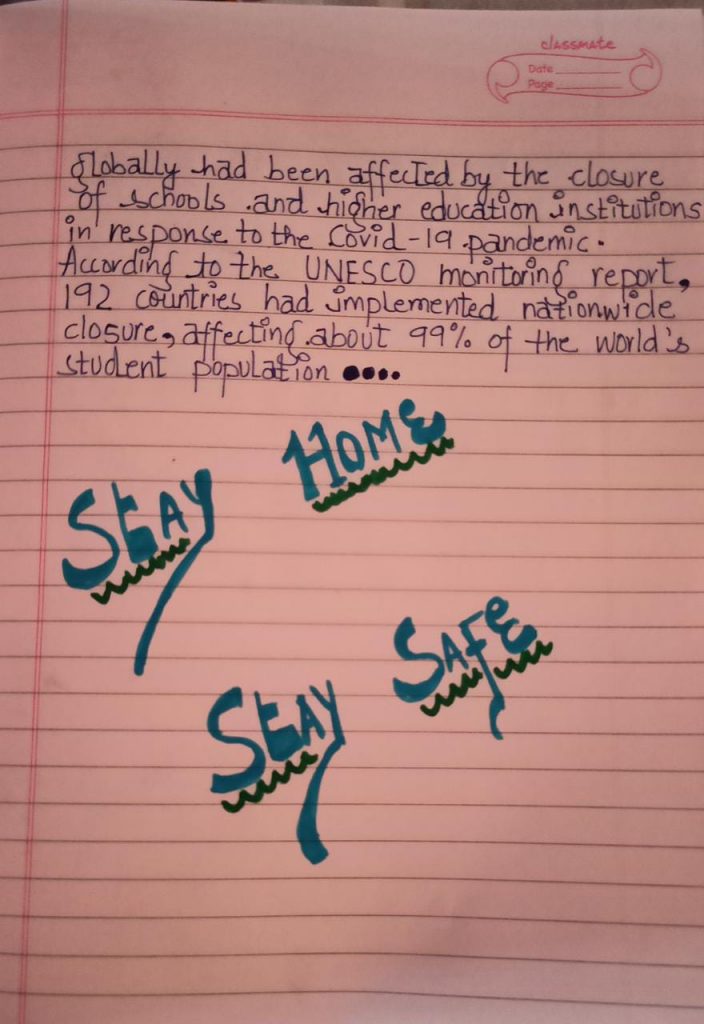 classmate
Date
Page
globally had been affected by the closure
of schools and higher education institutions
in response to the Covid-19 pandemic.
According to the UNESCO monitoring report,
192 countries had implemented nationwide
closure, affecting about 99% of the world's
student population ....
STAY HOME
STAY SAFE